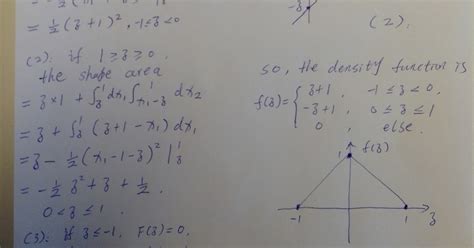 = ½(z+1)², -1<z<0
(2): if 1≥z≥0.
the shape area
= z×1 + ∫_z^1 dx₁ ∫_{x₁-z}^1 dx₂
= z + ∫_z^1 (z+1-x₁) dx₁
= z - ½(x₁-1-z)² |_z^1
= -½z² + z + ½.
0<z≤1.
(3): if z≤-1. F(z)=0.
-z
(2).
so, the density function is
f(z)= { z+1, -1≤z<0,
-z+1, 0≤z≤1
0, else.
f(z)
1
-1 1 z